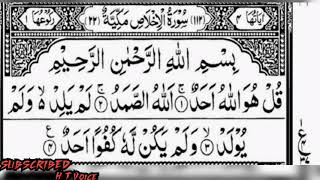 اٰیَاتُهَا ۴ (۱۱۲) سُوْرَةُ الْاِخْلَاصِ مَكِّیَّةٌ (۲۲) رُكُوْعُهَا ۱
بِسْمِ اللّٰهِ الرَّحْمٰنِ الرَّحِیْمِ
قُلْ هُوَ اللّٰهُ اَحَدٌ ۱ اَللّٰهُ الصَّمَدُ ۲ لَمْ یَلِدْ ۙ۬ وَلَمْ
یُوْلَدْ ۳ وَلَمْ یَكُنْ لَّهٗ كُفُوًا اَحَدٌ ۴
SUBSCRIBED
H T VOICE